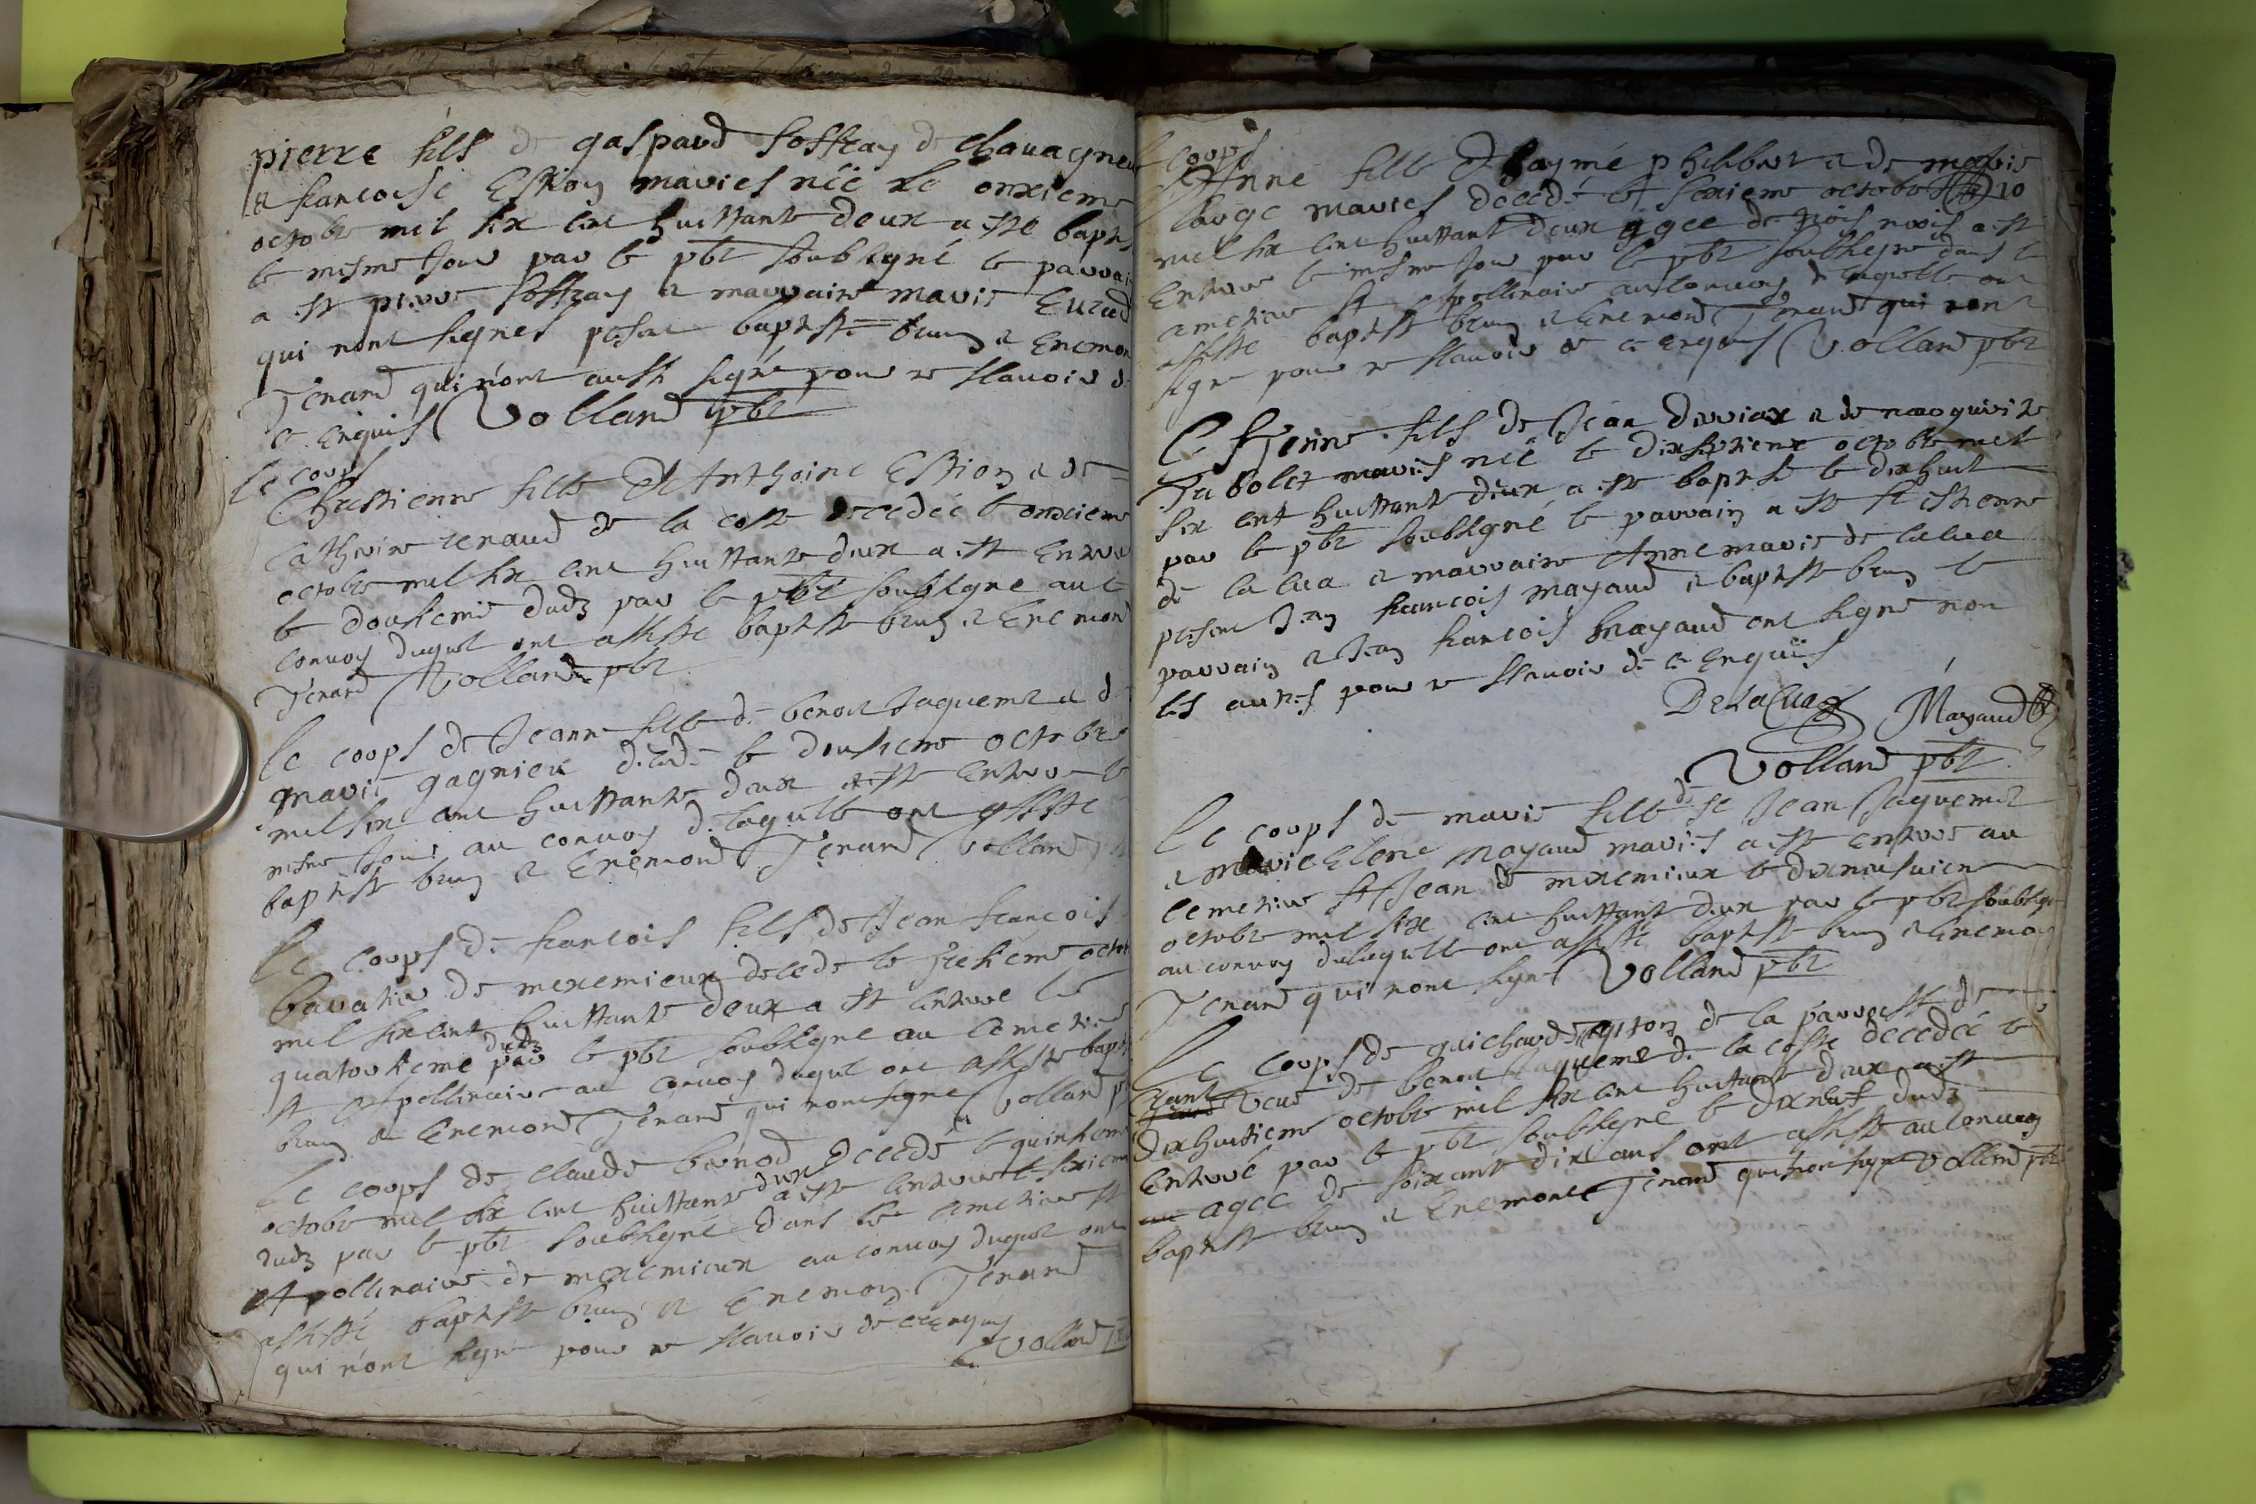 pierre fils de gaspard soffray de chavagneu
& francoise Estion maries néé le onzieme
octobre mil six cent huittante deux a esté bapt
le mesme jour par le pbr soubsigné le parrai
a esté pierre soffray & marraine marie
qui nont signes presant baptiste brun & Enemon
Tenard qui n'ont aussi signé pour ne scavoir d
ce Enquis Volland pbr
le corps
Chrestienne fille de Anthoine Estion & de
Catherine renaud de la coste decedéé le onzieme
octobre mil six cent huittante deux a esté Enterré
le douziemе dudt par le pbr soubsigné au
convoy duquel ont assisté baptiste brun & Enemond
Tenard Volland pbr
le corps de Jeanne fille de benoit Jaquemet & d
marie gagnieu decede le douzieme octobre
mil six cent huittante deux a esté Enterre le
mesme jour au convoy de laquelle ont assisté
baptiste brun & Enemond Tenard Volland
le corps de francois fils de Jean francois
baratier de meximieux decede le treizieme octob
mil six cent huittante deux a esté enterre le
quatorzieme dudt par le pbr soubsigné au cemetiere
st Appollinaire au convoy duquel ont assisté bapt
brun & Enemond Tenard qui nont signe Volland p
le corps de claude bernod decedé le quinzieme
octobre mil six cent huittante deux a esté enterré le sezieme
dudt par le pbr soubsigné dans le cemetiere st
Apollinaire de meximieux au convoy duquel ont
assisté baptiste brun & Enemon Tenard
qui n'ont signé pour ne scavoir de ce Enquis
Volland
le corps
d'Anne fille d'Eaymé philibert & de marie
large maries decedé le sezieme octobre 10
mil six cent huittante deux agee de trois mois a esté
Enterre le mesme jour par le pbr soubsigné dans le
cemetiere st Appollinaire au convoy de laquelle ont
assisté baptiste brun & Enemond Tenard qui nont
signé pour ne scavoir de ce enquis Volland pbr
Estienne fils de Jean derviux & de marguerite
Tabolet maries néé le dixseptieme octobre mil
six cent huittante deux a esté baptisé le dixhuit
par le pbr soubsigné le parrain a esté sr Estienne
de la cua & marraine Anne marie de la cua
presant Jean francois mayaud & baptiste brun le
parrain & Jean francois mayaud ont signé non
les autres pour ne scavoir de ce enquis
De la Cua Mayaud
Volland pbr
le corps de marie fille de sr Jean Jaquemet
& marie Elene mayaud maries a esté enterré au
cemetiere st Jean de meximieux le dixneufvieme
octobre mil six cent huittante deux par le pbr soubsigné
au convoy de laquelle ont assisté baptiste brun & Enemon
Tenard qui nont signé Volland pbr
le corps de guicharde de la parroisse de
veuve de benoit Jaquemet de la coste decedéé le
dixhuitieme octobre mil six cent huittante deux a esté
Enterré par le pbr soubsigné le dixneuf dudt
agee de soixante dix ans ont assisté au convoy
baptiste brun & Enemond Tenard qui n'ont signé Volland pbr